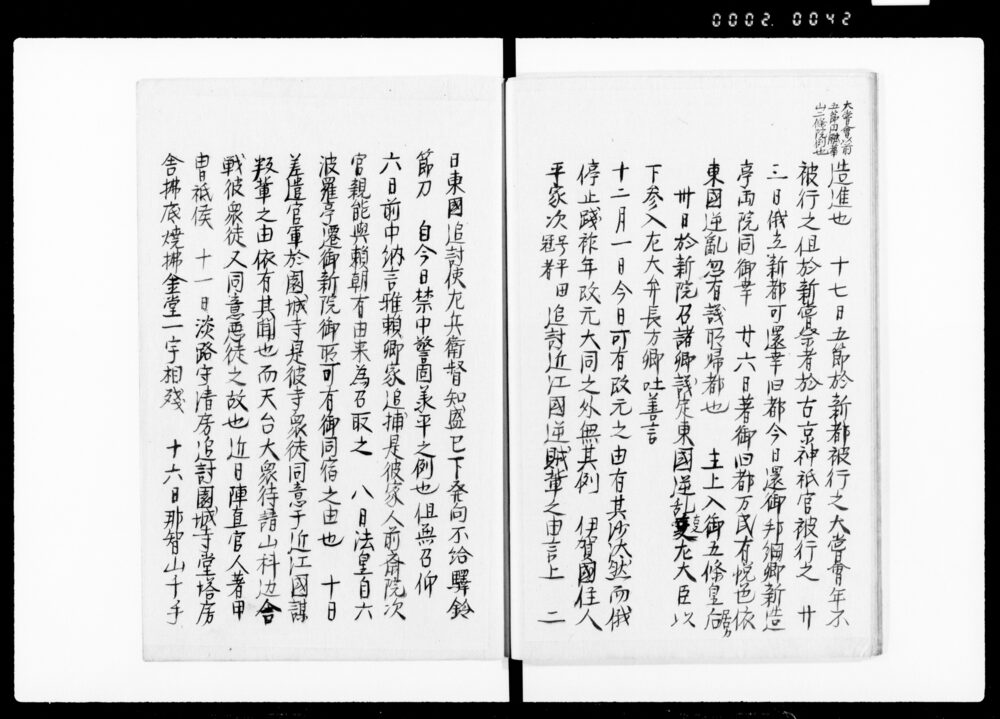 0002. 0042
大嘗會以前
五節円融華
山二條院例也
造進也 十七日五節於新都被行之大嘗會年不
被行之但於新嘗祭者於古京神祇官被行之 廿
三日俄立新都可還幸旧都今日還御邦綱卿新造
亭両院同御幸 廿六日著御旧都万民有悦色依
東國逆亂忽有議所帰都也 主上入御五條皇居
卅日於新院召諸卿議定東國逆乱 左大臣以
下参入左大弁長方卿吐善言
十二月一日今日可有改元之由有其沙汰然而俄
停止踐祚年改元大同之外無其例 伊賀國住人
平家次 号平田 冠者 追討近江國逆賊輩之由言上 二
日東國追討使左兵衛督知盛已下発向不給驛鈴
節刀 自今日禁中警固承平之例也但無召仰
六日前中納言雅頼卿家追捕是彼家人前斎院次
官親能與頼朝有由来為召取之 八日法皇自六
波羅亭遷御新院御所可有御同宿之由也 十日
差遣官軍於園城寺是彼寺衆徒同意于近江國謀
叛輩之由依有其聞也而天台大衆待請山科辺合
戦彼衆徒又同意悪徒之故也近日陣直官人著甲
冑祗候 十一日淡路守清房追討園城寺堂塔房
舎拂底焼拂金堂一宇相殘 十六日那智山千手